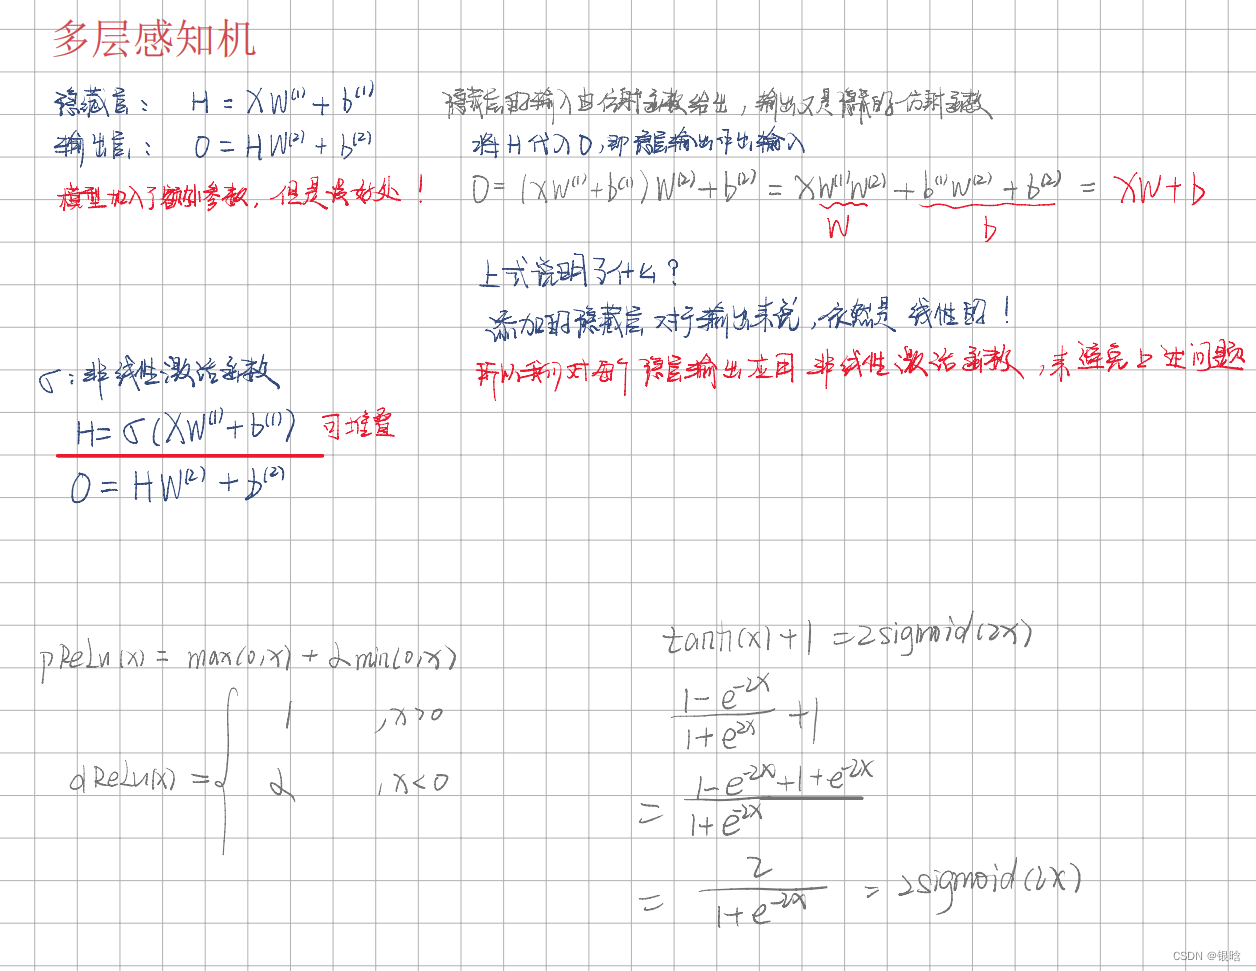 多层感知机
隐藏层: H = XW⁽¹⁾ + b⁽¹⁾
输出层: O = HW⁽²⁾ + b⁽²⁾
模型加入了额外参数, 但是没好处!
隐藏层的输入由仿射函数给出, 输出又是隐藏的仿射函数
将H代入O, 即隐层输出 输入
O = (XW⁽¹⁾+b⁽¹⁾)W⁽²⁾+b⁽²⁾ = XW⁽¹⁾W⁽²⁾ + b⁽¹⁾W⁽²⁾ + b⁽²⁾ = XW+b
W b
上式说明了什么?
添加的隐藏层对于输出来说, 依然是 线性的!
所以我们对每个隐层输出应用非线性激活函数, 来避免上述问题
σ: 非线性激活函数
H = σ(XW⁽¹⁾+b⁽¹⁾) 可堆叠
O = HW⁽²⁾ + b⁽²⁾
pReLu(x) = max(0,x) + αmin(0,x)
dReLu(x) = { 1 , x>0
α , x<0
tanh(x)+1 = 2sigmoid(2x)
(1-e⁻²ˣ)/(1+e²ˣ) + 1
= (1-e⁻²ˣ+1+e⁻²ˣ)/(1+e⁻²ˣ)
= 2/(1+e⁻²ˣ) = 2sigmoid(2x)
CSDN @银晗